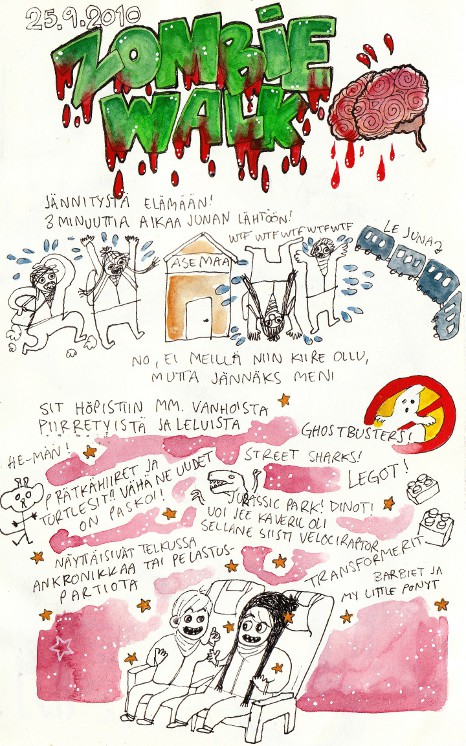 25.9.2010
ZOMBIE
WALK
JÄNNITYSTÄ ELÄMÄÄN!
3 MINUUTTIA AIKAA JUNAN LÄHTÖÖN!
WTF WTF WTF WTF WTF
LE JUNA?
ASEMAA
NO, EI MEILLÄ NIIN KIIRE OLLU,
MUTTA JÄNNÄKS MENI
SIT HÖPISTIIN MM. VANHOISTA
PIIRRETYISTÄ JA LELUISTA
GHOSTBUSTERS!
HE-MAN!
STREET SHARKS!
PRÄTKÄHIIRET JA
TURTLESIT!! VÄHÄ NE UUDET
ON PASKOI!
LEGOT!
JURASSIC PARK! DINOT!
VOI JEE KAVERIL OLI
SELLANE SIISTI VELOCIRAPTOR
NÄYTTÄISIVÄT TELKUSSA
ANKRONIKKAA TAI PELASTUS-
PARTIOTA
TRANSFORMERIT
BARBIET JA
MY LITTLE PONYT